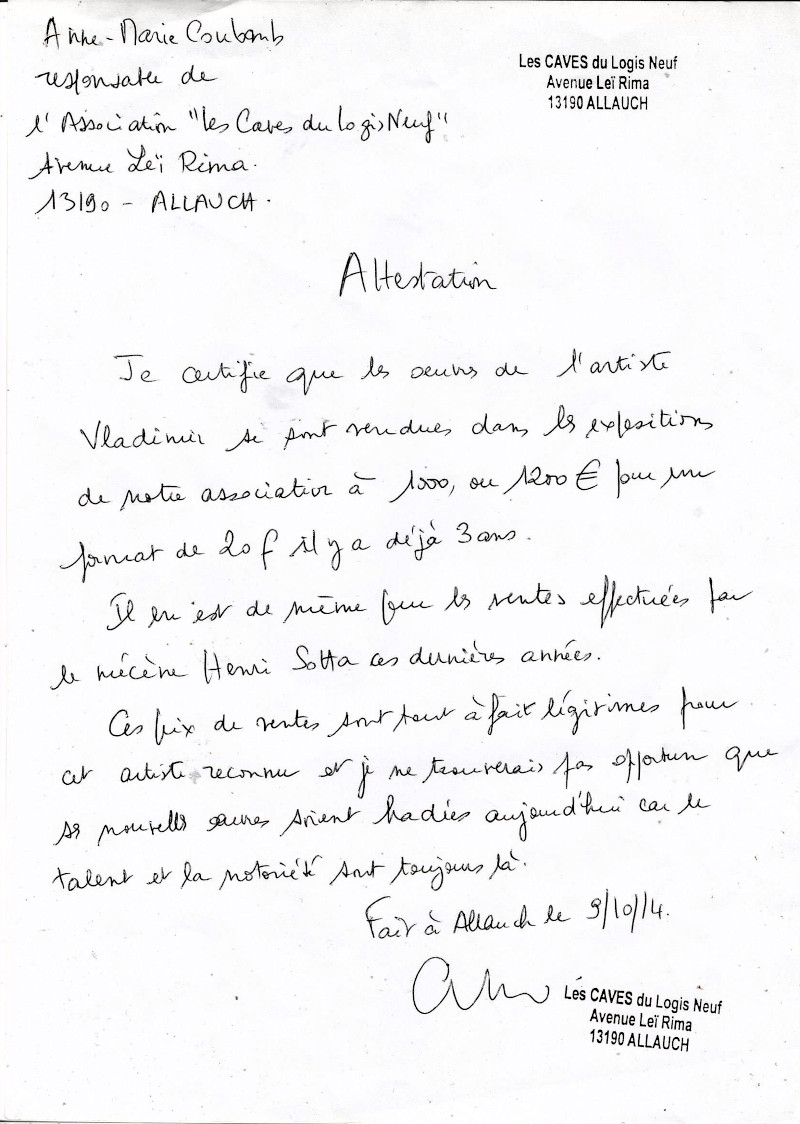 Anne-Marie Coulomb
responsable de
l'Association "Les Caves du Logis Neuf"
Avenue Leï Rima.
13190 - ALLAUCH.
Les CAVES du Logis Neuf
Avenue Leï Rima
13190 ALLAUCH
Attestation
Je certifie que les oeuvres de l'artiste
Vladimir se sont vendues dans les expositions
de notre association à 1000, ou 1200 € pour un
format de 20 F il y a déjà 3 ans.
Il en est de même pour les ventes effectuées par
le mécène Henri Sotta ces dernières années.
Ces prix de ventes sont tout à fait légitimes pour
cet artiste reconnu et je ne trouverais pas opportun que
ses nouvelles oeuvres soient bradées aujourd'hui car le
talent et la notoriété sont toujours là.
Fait à Allauch le 9/10/14.
Les CAVES du Logis Neuf
Avenue Leï Rima
13190 ALLAUCH